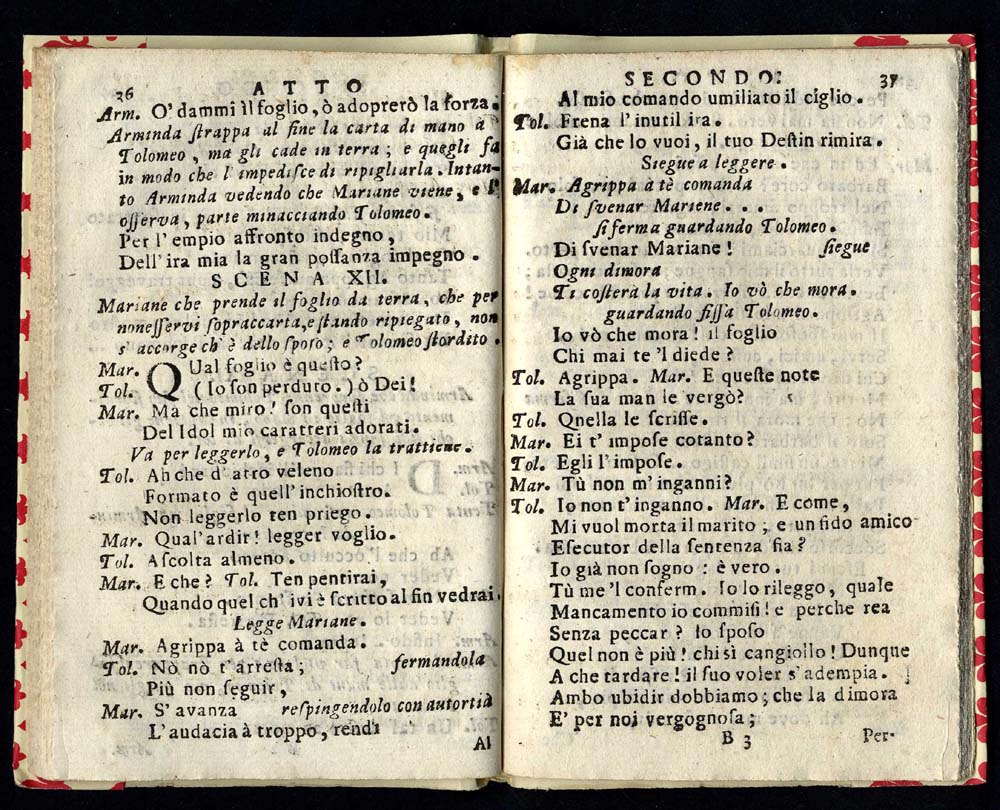 36 ATTO
Arm. O' dammi il foglio, ò adoprerò la forza.
Arminda ſtrappa al fine la carta di mano à
Tolomeo, ma gli cade in terra; e quegli fa
in modo che l'impediſce di ripigliarla. Intan-
to Arminda vedendo che Mariane viene, e l'
oſſerva, parte minacciando Tolomeo.
Per l'empio affronto indegno,
Dell'ira mia la gran poſſanza impegno.
SCENA XII.
Mariane che prende il foglio da terra, che per
noneſſervi ſopraccarta, e ſtando ripiegato, non
s'accorge ch'è dello ſpoſo; e Tolomeo ſtordito.
Mar. QUal foglio è queſto?
Tol. (Io ſon perduto.) ò Dei!
Mar. Ma che miro! ſon queſti
Del Idol mio caratteri adorati.
Va per leggerlo, e Tolomeo la trattiene.
Tol. Ah che d'atro veleno
Formato è quell'inchioſtro.
Non leggerlo ten priego.
Mar. Qual'ardir! legger voglio.
Tol. Aſcolta almeno.
Mar. E che? Tol. Ten pentirai,
Quando quel ch'ivi è ſcritto al fin vedrai.
Legge Mariane.
Mar. Agrippa à tè comanda.
Tol. Nò nò t'arreſta; fermandola
Più non ſeguir,
Mar. S'avanza reſpingendolo con autortià
L'audacia à troppo, rendi
Al
SECONDO. 37
Al mio comando umiliato il ciglio.
Tol. Frena l'inutil ira.
Già che lo vuoi, il tuo Deſtin rimira.
Siegue a leggere.
Mar. Agrippa à tè comanda
Di ſvenar Mariene...
ſi ferma guardando Tolomeo.
Di svenar Mariane! ſiegue
Ogni dimora
Ti coſterà la vita. Io vò che mora.
guardando fiſſa Tolomeo.
Io vò che mora! il foglio
Chi mai te 'l diede?
Tol. Agrippa. Mar. E queſte note
La sua man le vergò?
Tol. Qnella le ſcriſſe.
Mar. Ei t' impoſe cotanto?
Tol. Egli l'impoſe.
Mar. Tù non m'inganni?
Tol. Io non t'inganno. Mar. E come,
Mi vuol morta il marito; e un fido amico
Eſecutor della ſentenza fia?
Io già non ſogno: è vero.
Tù me 'l conferm. Io lo rileggo, quale
Mancamento io commiſi! e perche rea
Senza peccar? Io ſpoſo
Quel non è più! chi sì cangiollo! Dunque
A che tardare! il ſuo voler s'adempia.
Ambo ubidir dobbiamo; che la dimora
E' per noi vergognoſa;
B 3 Per-